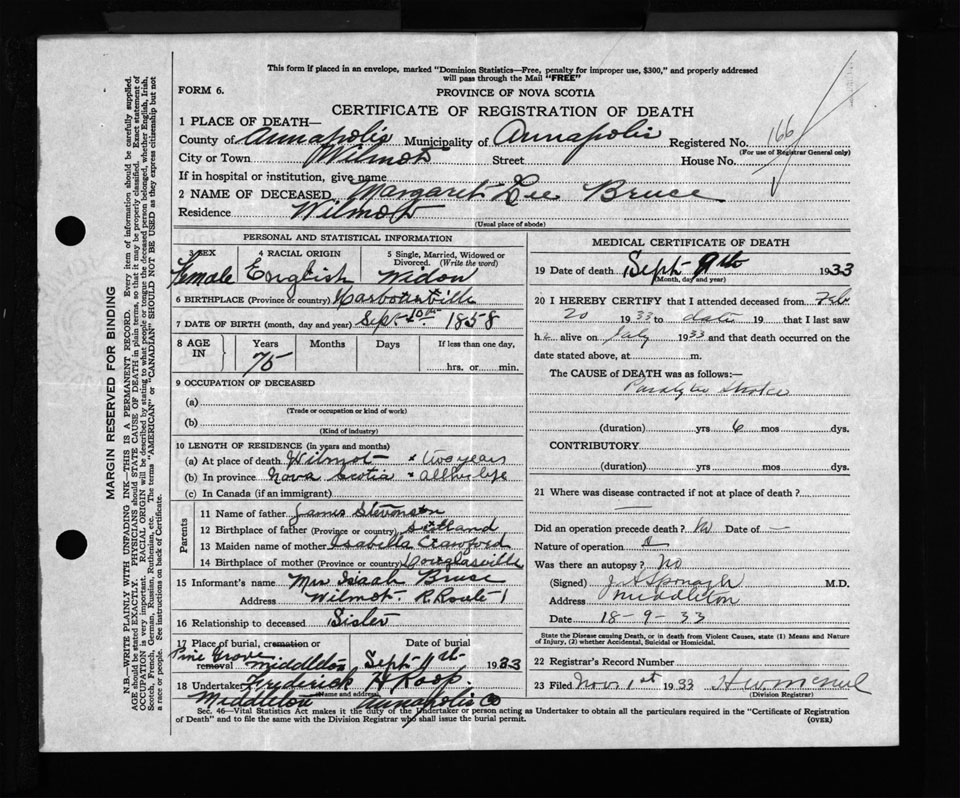 This form if placed in an envelope, marked "Dominion Statistics—Free, penalty for improper use, $300," and properly addressed
will pass through the Mail "FREE"
FORM 6.
PROVINCE OF NOVA SCOTIA
CERTIFICATE OF REGISTRATION OF DEATH
1 PLACE OF DEATH—
County of Annapolis Municipality of Annapolis Registered No. 166
(For use of Registrar General only)
City or Town Wilmot Street House No.
If in hospital or institution, give name
2 NAME OF DECEASED Margaret Lee Bruce
Residence Wilmot
(Usual place of abode)
PERSONAL AND STATISTICAL INFORMATION
3 SEX 4 RACIAL ORIGIN 5 Single, Married, Widowed or Divorced. (Write the word)
Female English Widow
6 BIRTHPLACE (Province or country)
7 DATE OF BIRTH (month, day and year) Sept 10th 1858
8 AGE IN Years Months Days If less than one day,
75 hrs. or min.
9 OCCUPATION OF DECEASED
(a)
(Trade or occupation or kind of work)
(b)
(Kind of industry)
10 LENGTH OF RESIDENCE (in years and months)
(a) At place of death Wilmot two years
(b) In province Nova Scotia all her life
(c) In Canada (if an immigrant)
Parents
11 Name of father James Stevenson
12 Birthplace of father (Province or country) Scotland
13 Maiden name of mother Isabella Crawford
14 Birthplace of mother (Province or country) Douglasville
15 Informant's name Mrs Isaah Bruce
Address Wilmot R. Route 1
16 Relationship to deceased Sister
17 Place of burial, cremation or removal Date of burial
Pine Grove Middleton Sept 11th 1933
18 Undertaker Frederick H Roop
Middleton Annapolis Co
MEDICAL CERTIFICATE OF DEATH
19 Date of death Sept 9th 1933
(Month, day and year)
20 I HEREBY CERTIFY that I attended deceased from Feb
20 1933 to date 19 that I last saw
h alive on July 1933 and that death occurred on the
date stated above, at m.
The CAUSE of DEATH was as follows:—
Paralytic Stroke
(duration) yrs 6 mos dys.
CONTRIBUTORY
(duration) yrs. mos. dys.
21 Where was disease contracted if not at place of death?
Did an operation precede death? No Date of —
Nature of operation 0
Was there an autopsy? No
(Signed) J A Sponagle M.D.
Address Middleton
Date 18-9-33
State the Disease causing Death, or in death from Violent Causes, state (1) Means and Nature
of Injury, (2) whether Accidental, Suicidal or Homicidal.
22 Registrar's Record Number
23 Filed Nov 1st 1933
(Division Registrar)
Sec. 46—Vital Statistics Act makes it the duty of the Undertaker or person acting as Undertaker to obtain all the particulars required in the "Certificate of Registration
of Death" and to file the same with the Division Registrar who shall issue the burial permit.
(OVER)
MARGIN RESERVED FOR BINDING
N.B.—WRITE PLAINLY WITH UNFADING INK—THIS IS A PERMANENT RECORD. Every item of information should be carefully supplied.
AGE should be stated EXACTLY. PHYSICIANS should STATE CAUSE OF DEATH in plain terms, so that it may be properly classified. Exact statement of
OCCUPATION is very important. RACIAL ORIGIN will be described by stating to what people or tongue the deceased person belonged, whether English, Irish,
Scotch, French, German, Russian, Ruthenian, etc. The terms "AMERICAN" or "CANADIAN" SHOULD NOT BE USED as they express citizenship but not
a race or people. See instructions on back of Certificate.